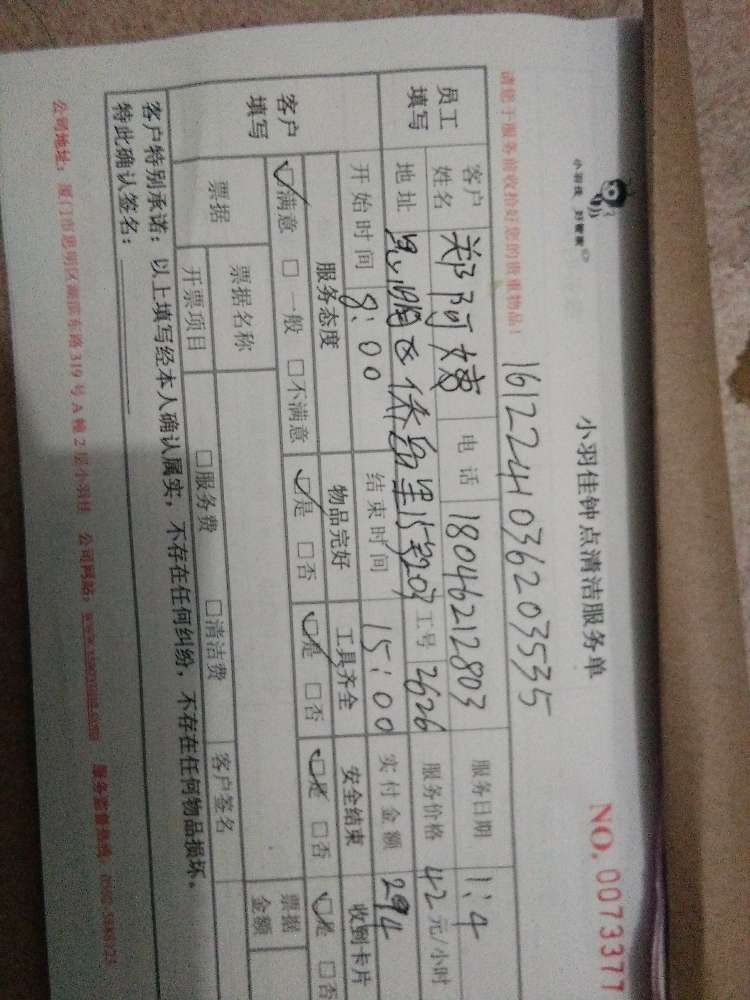 小羽佳 好管家
小羽佳钟点清洁服务单
NO. 0073377
1612241036203535
请您于服务前收拾好您的贵重物品!
员工填写 客户姓名 郑阿姨 电话 18046212803 服务日期 1:4
地址 思明区侨岳里15号207 工号 2626 服务价格 42元/小时
开始时间 8:00 结束时间 15:00 实付金额 294
客户填写 服务态度 物品完好 工具齐全 安全结束 收到卡片
☑满意 □一般 □不满意 ☑是 □否 ☑是 □否 ☑是 □否 ☑是 □否
票据 票据名称 票据金额
开票项目 □服务费 □清洁费 客户签名
客户特别承诺:以上填写经本人确认属实,不存在任何纠纷,不存在任何物品损坏。
特此确认签名:
公司地址:厦门市思明区湖滨东路319号A幢2层小羽佳 公司网站: 服务监督热线: